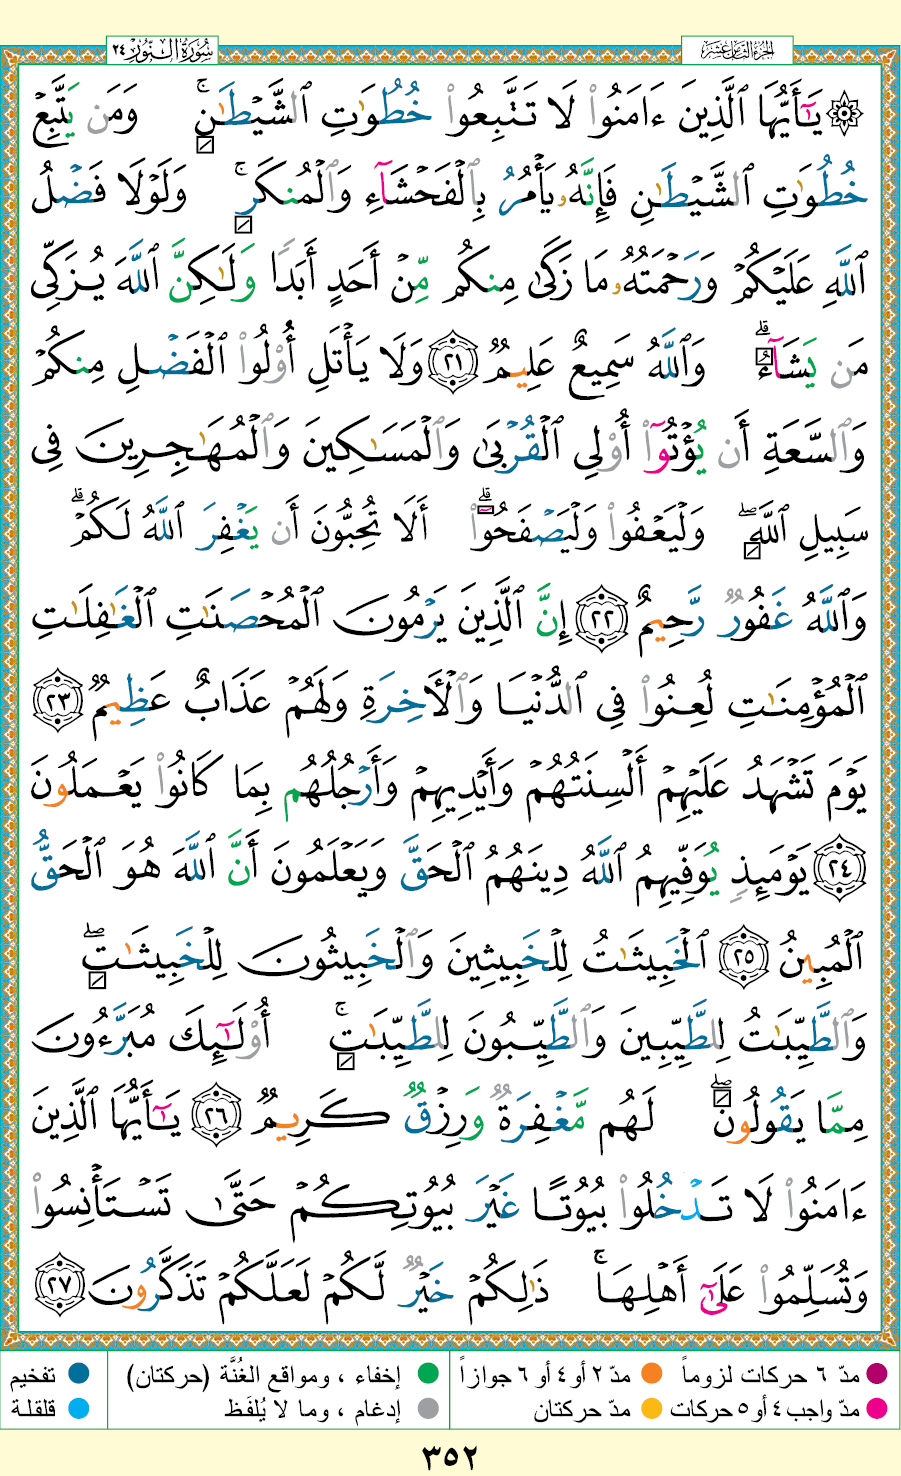 الجزء الثامن عشر
سُورَةُ النُّورِ ٢٤
۞ يَـٰٓأَيُّهَا ٱلَّذِينَ ءَامَنُوا۟ لَا تَتَّبِعُوا۟ خُطُوَٰتِ ٱلشَّيْطَـٰنِ ۚ وَمَن يَتَّبِعْ
خُطُوَٰتِ ٱلشَّيْطَـٰنِ فَإِنَّهُۥ يَأْمُرُ بِٱلْفَحْشَآءِ وَٱلْمُنكَرِ ۚ وَلَوْلَا فَضْلُ
ٱللَّهِ عَلَيْكُمْ وَرَحْمَتُهُۥ مَا زَكَىٰ مِنكُم مِّنْ أَحَدٍ أَبَدًا وَلَـٰكِنَّ ٱللَّهَ يُزَكِّى
مَن يَشَآءُ ۗ وَٱللَّهُ سَمِيعٌ عَلِيمٌ ٢١ وَلَا يَأْتَلِ أُو۟لُوا۟ ٱلْفَضْلِ مِنكُمْ
وَٱلسَّعَةِ أَن يُؤْتُوٓا۟ أُو۟لِى ٱلْقُرْبَىٰ وَٱلْمَسَـٰكِينَ وَٱلْمُهَـٰجِرِينَ فِى
سَبِيلِ ٱللَّهِ ۖ وَلْيَعْفُوا۟ وَلْيَصْفَحُوٓا۟ ۗ أَلَا تُحِبُّونَ أَن يَغْفِرَ ٱللَّهُ لَكُمْ ۗ
وَٱللَّهُ غَفُورٌ رَّحِيمٌ ٢٢ إِنَّ ٱلَّذِينَ يَرْمُونَ ٱلْمُحْصَنَـٰتِ ٱلْغَـٰفِلَـٰتِ
ٱلْمُؤْمِنَـٰتِ لُعِنُوا۟ فِى ٱلدُّنْيَا وَٱلْـَٔاخِرَةِ وَلَهُمْ عَذَابٌ عَظِيمٌ ٢٣
يَوْمَ تَشْهَدُ عَلَيْهِمْ أَلْسِنَتُهُمْ وَأَيْدِيهِمْ وَأَرْجُلُهُم بِمَا كَانُوا۟ يَعْمَلُونَ
٢٤ يَوْمَئِذٍ يُوَفِّيهِمُ ٱللَّهُ دِينَهُمُ ٱلْحَقَّ وَيَعْلَمُونَ أَنَّ ٱللَّهَ هُوَ ٱلْحَقُّ
ٱلْمُبِينُ ٢٥ ٱلْخَبِيثَـٰتُ لِلْخَبِيثِينَ وَٱلْخَبِيثُونَ لِلْخَبِيثَـٰتِ ۖ
وَٱلطَّيِّبَـٰتُ لِلطَّيِّبِينَ وَٱلطَّيِّبُونَ لِلطَّيِّبَـٰتِ ۚ أُو۟لَـٰٓئِكَ مُبَرَّءُونَ
مِمَّا يَقُولُونَ ۖ لَهُم مَّغْفِرَةٌ وَرِزْقٌ كَرِيمٌ ٢٦ يَـٰٓأَيُّهَا ٱلَّذِينَ
ءَامَنُوا۟ لَا تَدْخُلُوا۟ بُيُوتًا غَيْرَ بُيُوتِكُمْ حَتَّىٰ تَسْتَأْنِسُوا۟
وَتُسَلِّمُوا۟ عَلَىٰٓ أَهْلِهَا ۚ ذَٰلِكُمْ خَيْرٌ لَّكُمْ لَعَلَّكُمْ تَذَكَّرُونَ ٢٧
مدّ ٦ حركات لزوماً مدّ ٢ أو ٤ أو ٦ جوازاً إخفاء ، ومواقع الغُنَّة (حركتان) تفخيم
مدّ واجب ٤ أو ٥ حركات مدّ حركتان إدغام ، وما لا يُلفَظ قلقلة
٣٥٢